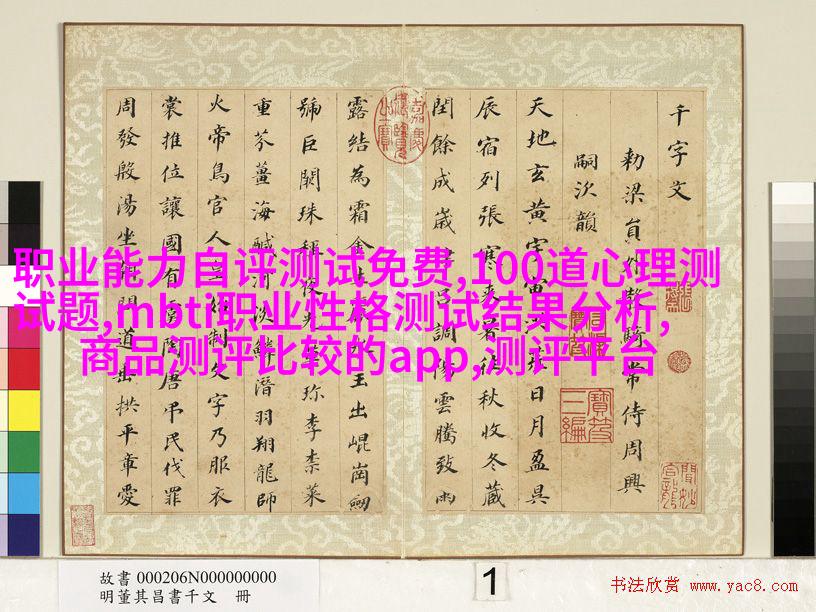 千字文
勅梁員外散騎常侍周興
嗣次韻
天地玄黃宇宙洪荒日月盈昃
辰宿列張寒來暑往秋收冬藏
閏餘成歲律呂調陽雲騰致雨
露結為霜金生麗水玉出崐崗劒
號巨闕珠稱夜光菓珍李柰菜
重芥薑海醎河淡鱗潛羽翔龍師
火帝鳥官人皇始制文字乃服衣
裳推位讓國有虞陶唐弔民伐罪
周發殷湯坐朝問道垂拱平章愛
职业能力自评测试免费,100道心理测
试题,mbti职业性格测试结果分析,
商品测评比较的app,测评平台
故書 000206N000000000
明董其昌書千文 冊
1
书法欣赏 www.yac8.com